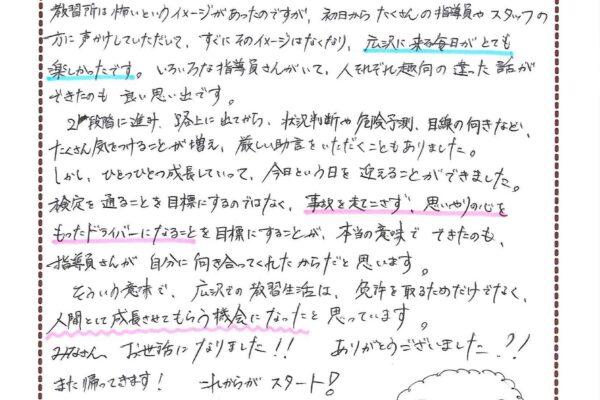 教習所は怖いというイメージがあったのですが、初日からたくさんの指導員やスタッフの
方に声かけしていただいて、すぐにそのイメージはなくなり、広沢に来る毎日がとても
楽しかったです。いろいろな指導員さんがいて、人それぞれ趣向の違った話が
できたのも良い思い出です。
2段階に進み、路上に出てから、状況判断や危険予測、目線の向きなど、
たくさん気をつけることが増え、厳しい助言をいただくこともありました。
しかし、ひとつひとつ成長していって、今日という日を迎えることができました。
検定を通ることを目標にするのではなく、事故を起こさず、思いやりの心を
もったドライバーになることを目標にすることが、本当の意味でできたのも、
指導員さんが自分に向き合ってくれたからだと思います。
そういう意味で、広沢での教習生活は、免許を取るためだけでなく、
人間として成長させてもらう機会になったと思っています。
みなさん、お世話になりました!! ありがとうございました!!
また帰ってきます! これからがスタート!